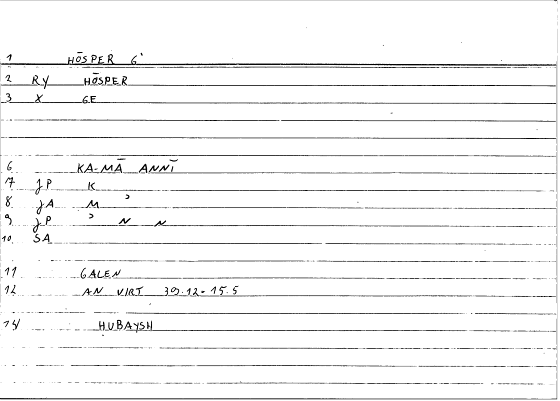 1 HŌSPER 6'
2 RY HŌSPER
3 X GE
6 KA-MĀ ANNĪ
7 JP K
8 JA M ʾ
9 JP ʾ N N
10 SA
11 GALEN
12 AN VIRT 39.12-15.5
14 HUBAYSH